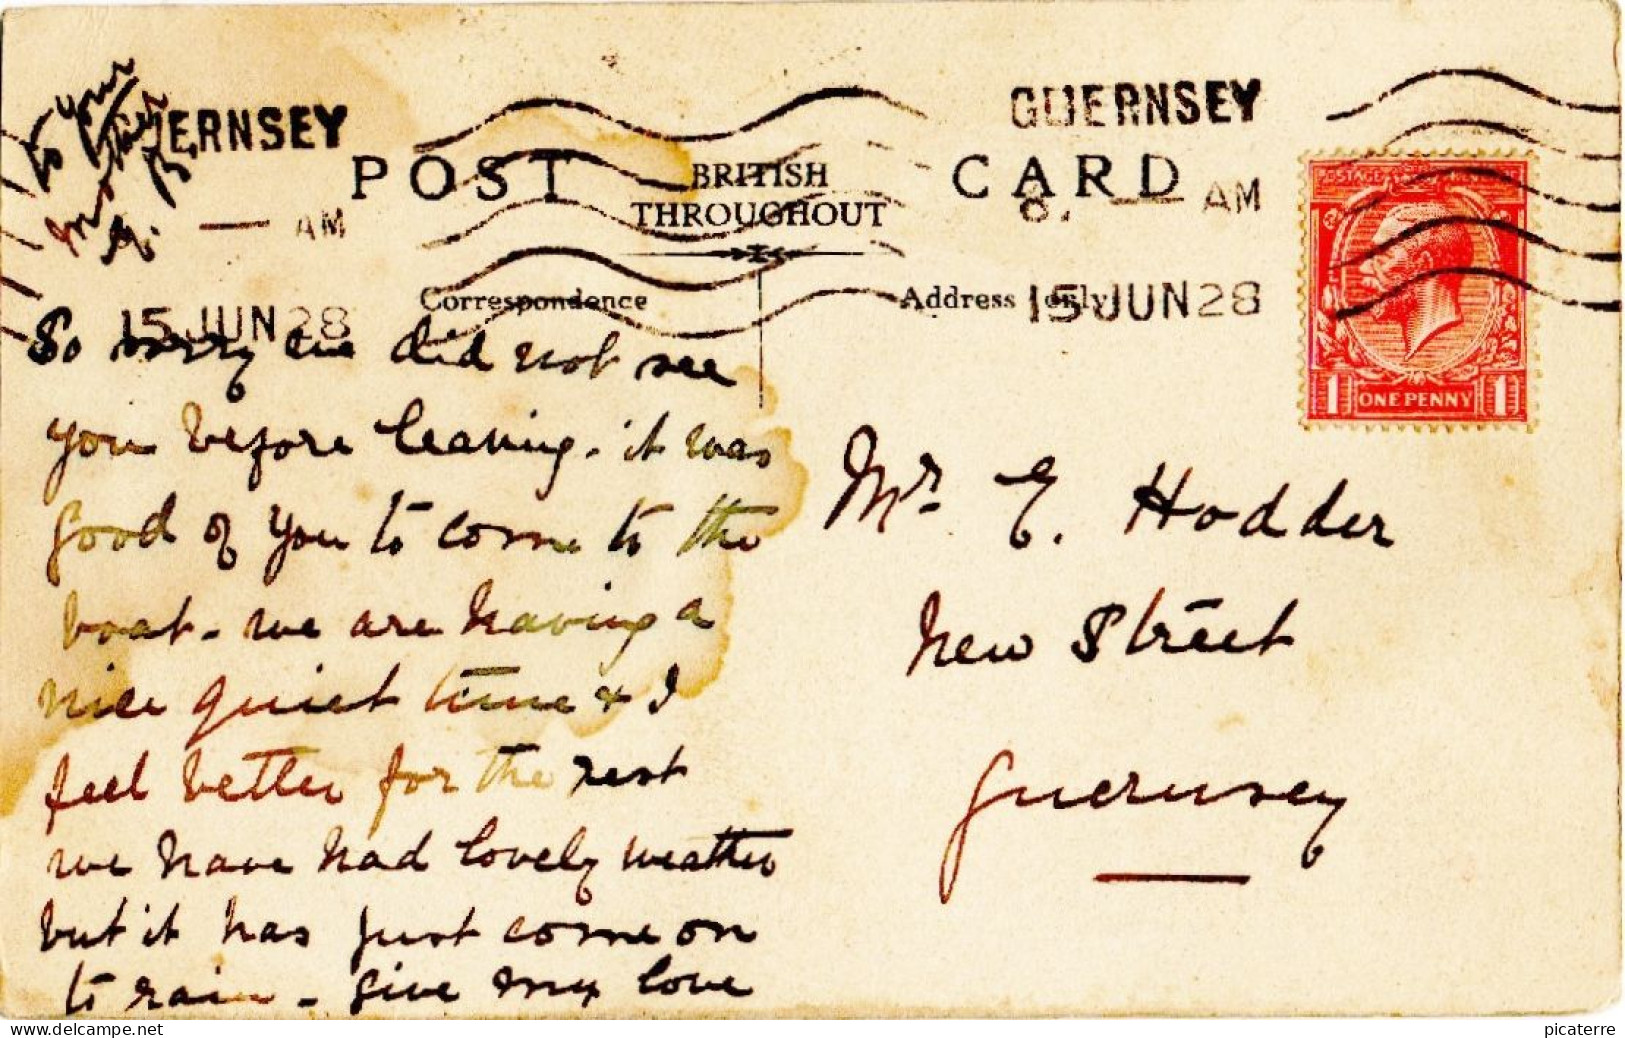 GUERNSEY
POST CARD
BRITISH
THROUGHOUT
8. — AM
15 JUN 28
ERNSEY
— AM
15 JUN 28
Correspondence
Address only
POSTAGE
1 ONE PENNY 1
So sorry we did not see
you before leaving. it was
good of you to come to the
boat - we are having a
nice quiet time & I
feel better for the rest
we have had lovely weather
but it has just come on
to rain - give my love
to your
Mother
B.
Mr. E. Hodder
New Street
Guernsey
picaterre